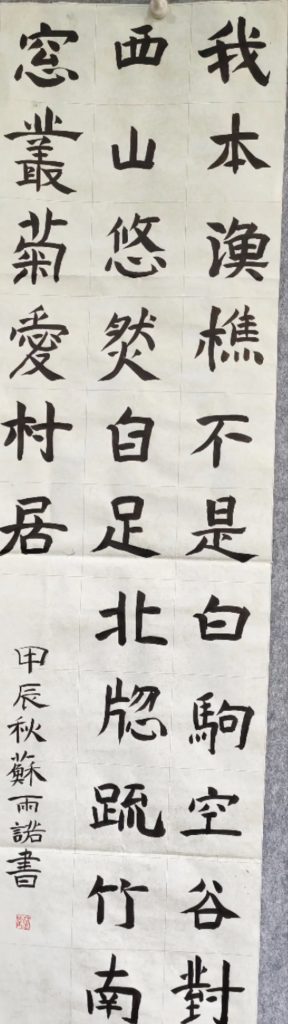 我本漁樵不是白駒空谷對
西山悠然自足北牕疏竹南
窓叢菊愛村居
甲辰秋蘇雨諾書